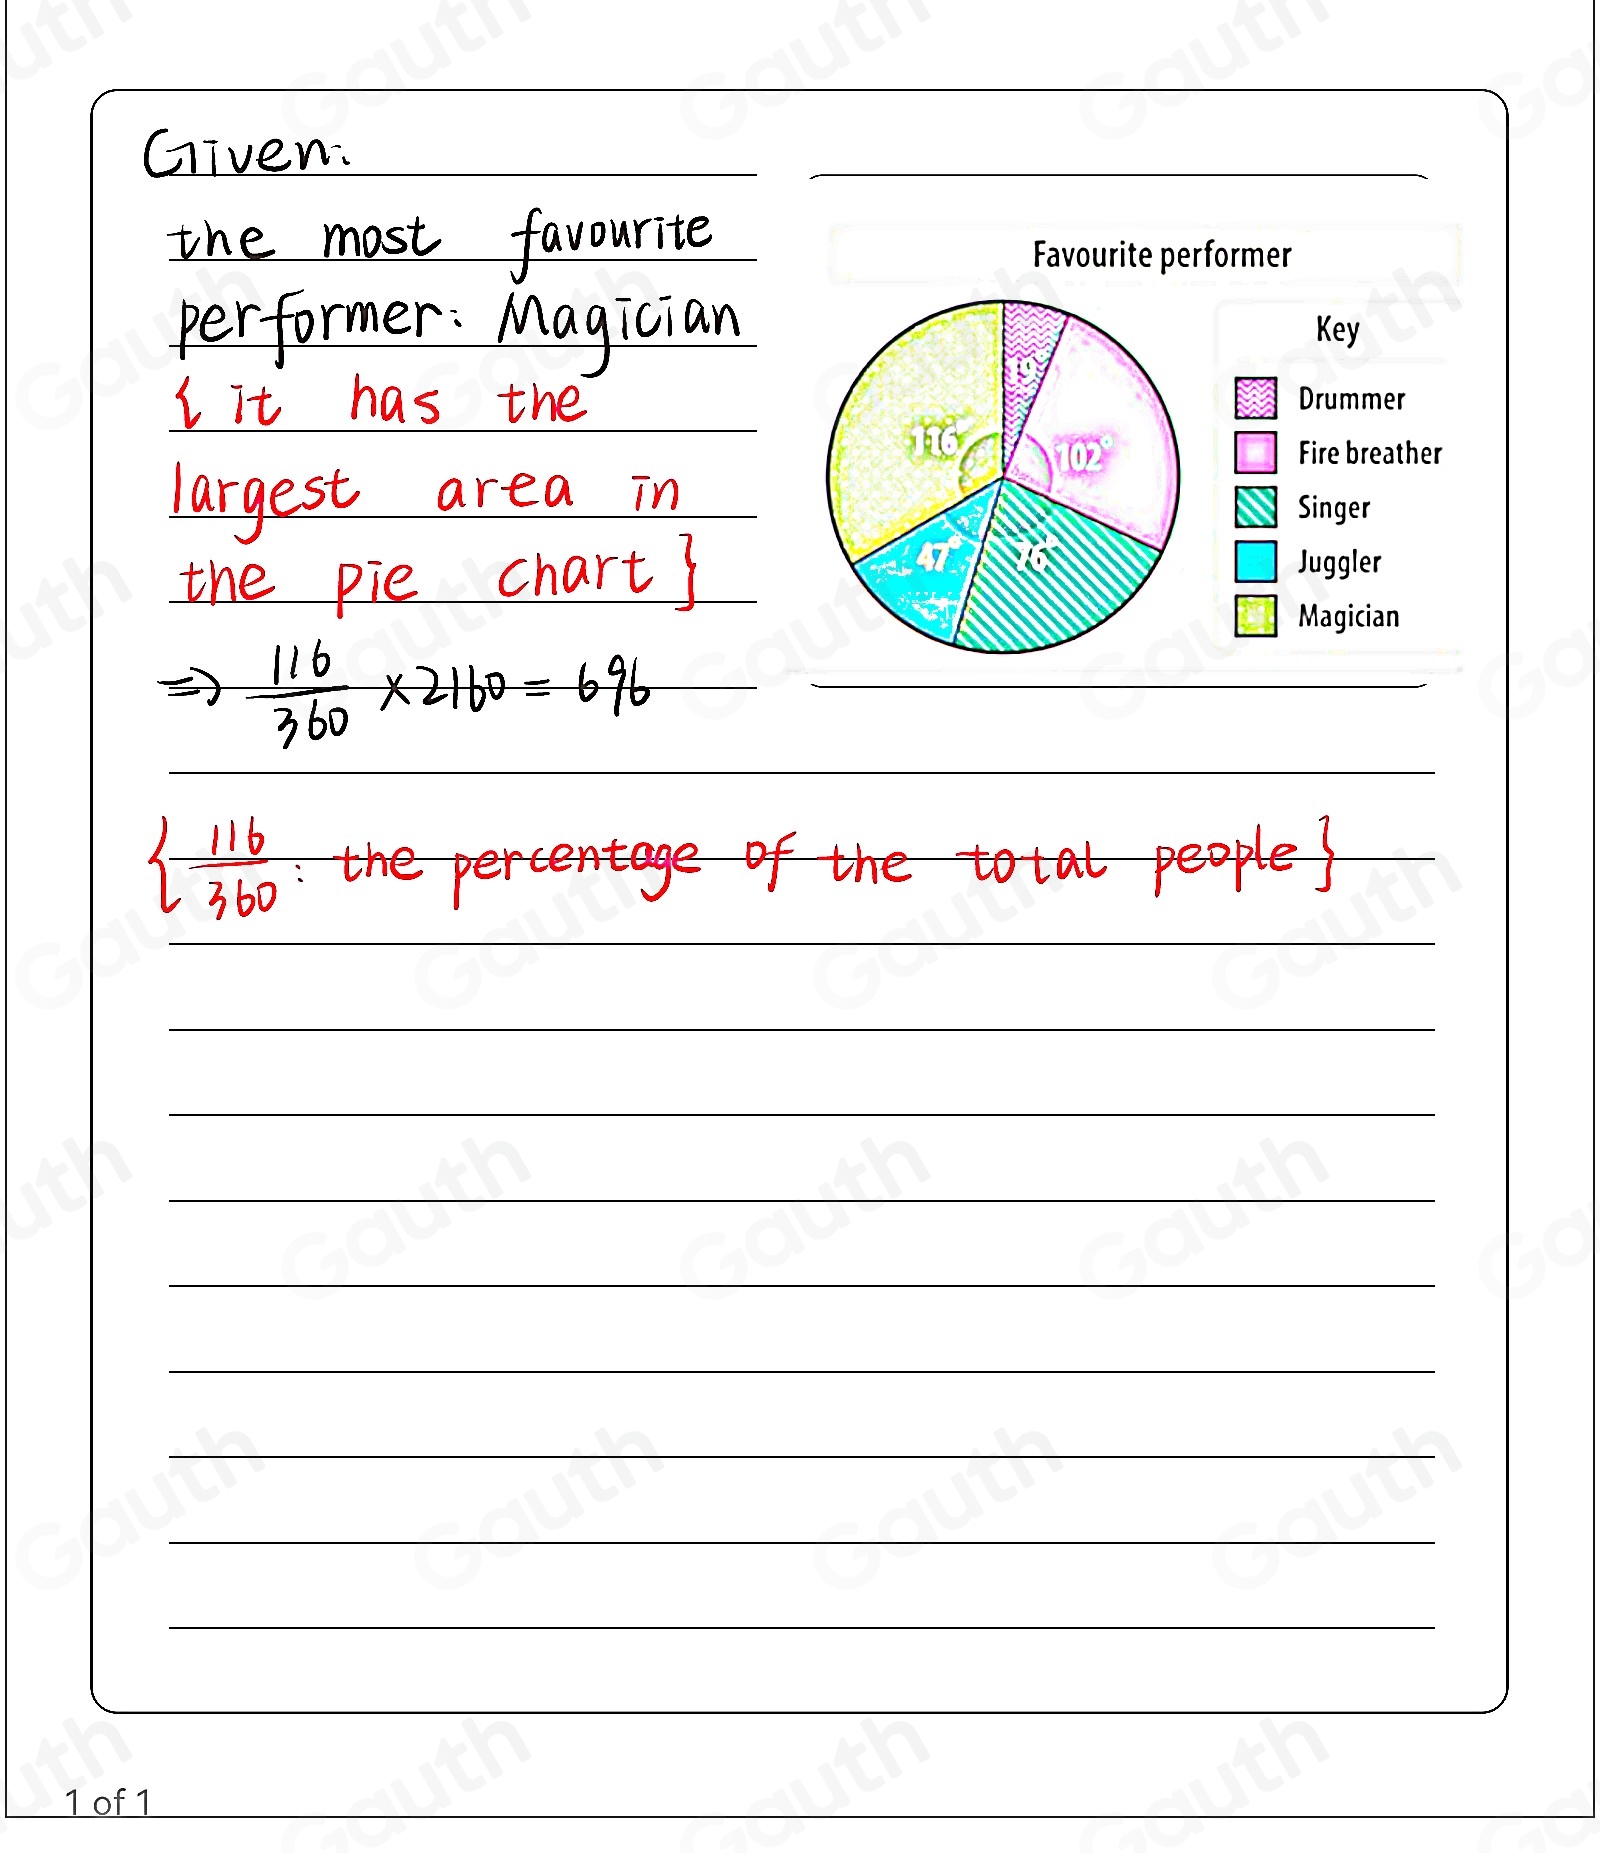 Given:
the most favourite
performer: Magician
{ it has the
largest area in
the pie chart }
⇒ 116/360 × 2160 = 696
Favourite performer
19°
102°
116°
47°
76°
Key
Drummer
Fire breather
Singer
Juggler
Magician
{ 116/360 : the percentage of the total people }
1 of 1
Gauth